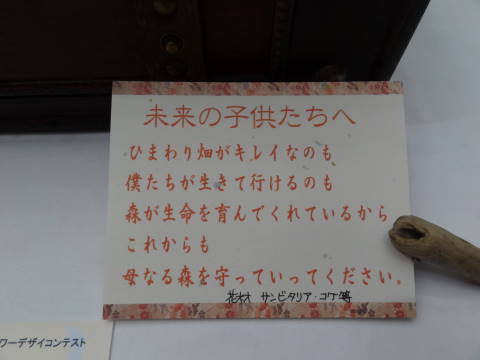 未来の子供たちへ
ひまわり畑がキレイなのも
僕たちが生きて行けるのも
森が生命を育んでくれているから
これからも
母なる森を守っていってください。
花材 サンビタリア・コケ等
ワーデザイコンテスト